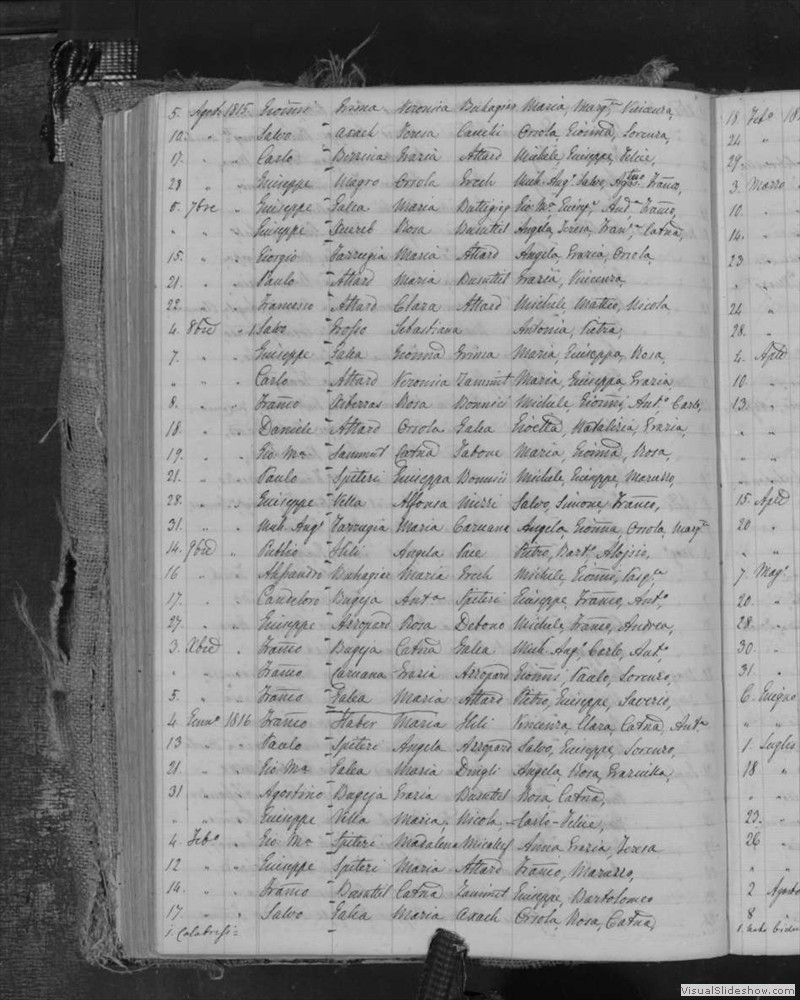 5. Agosto 1815 Gioñni Grima Veronica Buhagiar Maria, Marg.ta Vincenza,
10. " " Salvo Axach Teresa Camilli Orsola, Gioñna, Lorenza,
17. " " Carlo Grazia Attard Michele, Giuseppe, Felice,
28 " " Giuseppe Magro Orsola Grech Mich. Ang.o Salvo, Franco,
5. 7bre " Giuseppe Galea Maria Buttigieg Gio M.a Giusep.e And.a Franco,
" " " Giuseppe Rosa Busuttil Angela, Teresa, Fran.ca Catña,
15. " " Giorgio Farrugia Maria Attard Angela, Grazia, Orsola,
21. " " Paulo Attard Maria Busuttil Grazia, Vincenza,
22. " " Francesco Attard Clara Attard Michele, Matteo, Nicola
4. 8bre " 1. Salvo Grosso Sebastiana Antonia, Pietra,
7. " " Giuseppe Galea Gioñna Grima Maria, Giuseppa, Rosa,
" " " Carlo Attard Veronica Zammit Maria, Giuseppa, Grazia,
8. " " Franco Rosa Bonnici Michele, Gioñni, Ant.o Carlo,
18. " " Daniele Attard Orsola Galea Natalizia, Grazia,
19. " " Gio M.a Sammut Catña Zabone Maria, Gioñna, Rosa,
21. " " Paulo Spiteri Giuseppa Bonnici Michele, Giuseppe, Maruzzo,
28. " " Giuseppe Vella Alfonsa Mizzi Salvo, Simone, Franco,
31. " " Mich. Ang.o Farrugia Maria Caruana Angela, Gioñna, Orsola, Marg.ta
14. 9bre " Publio Hili Angela Pace Pietro, Bart.o Aloisio,
16 " " Alessandro Buhagiar Maria Grech Michele, Gioñni, Pasq.le
17. " " Candeloro Bugeja Ant.a Spiteri Giuseppe, Franco, Ant.o,
27. " " Giuseppe Azzopard Rosa Debono Michele, Franco, Andrea,
3. Xbre " Franco Bugeja Catña Galea Mich. Ang.o Carlo, Ant.o,
" " " Franco Caruana Grazia Azzopard Gioñni, Paulo, Lorenzo,
5. " " Franco Galea Maria Attard Pietro, Giuseppe, Saverio,
4. Genn.o 1816 Franco Haber Maria Hili Vincenza, Clara, Catña, Ant.a
13 " " Paulo Spiteri Angela Azzopard Salvo, Giuseppe, Lorenzo,
21. " " Gio M.a Galea Maria Dingli Angela, Rosa, Graziulla,
31 " " Agostino Bugeja Grazia Busuttil Rosa, Catña,
" " " Giuseppe Vella Maria, Nicola, Carlo, Felice,
4. Feb.o " Gio M.a Spiteri Madalena Micallef Anna, Grazia, Teresa
12 " " Giuseppe Spiteri Maria Attard Franco, Maruzzo,
14. " " Franco Busuttil Catña Zammit Giuseppe, Bartolomeo
17. " " Salvo Galea Maria Axach Orsola, Rosa, Catña,
1. Calabresi
18. Feb.o 18
24 "
29. "
3. Marzo
10. "
14. "
23 "
" "
24 "
28. "
4. Aple
10. "
13. "
" "
" "
" "
15. Aple
20 "
" "
7. Mag.o
20. "
28. "
30 "
31. "
6. Giugno
" "
1. Luglio
18 "
" "
23. "
26 "
" "
2 Agosto
8
VisualSlideshow.com